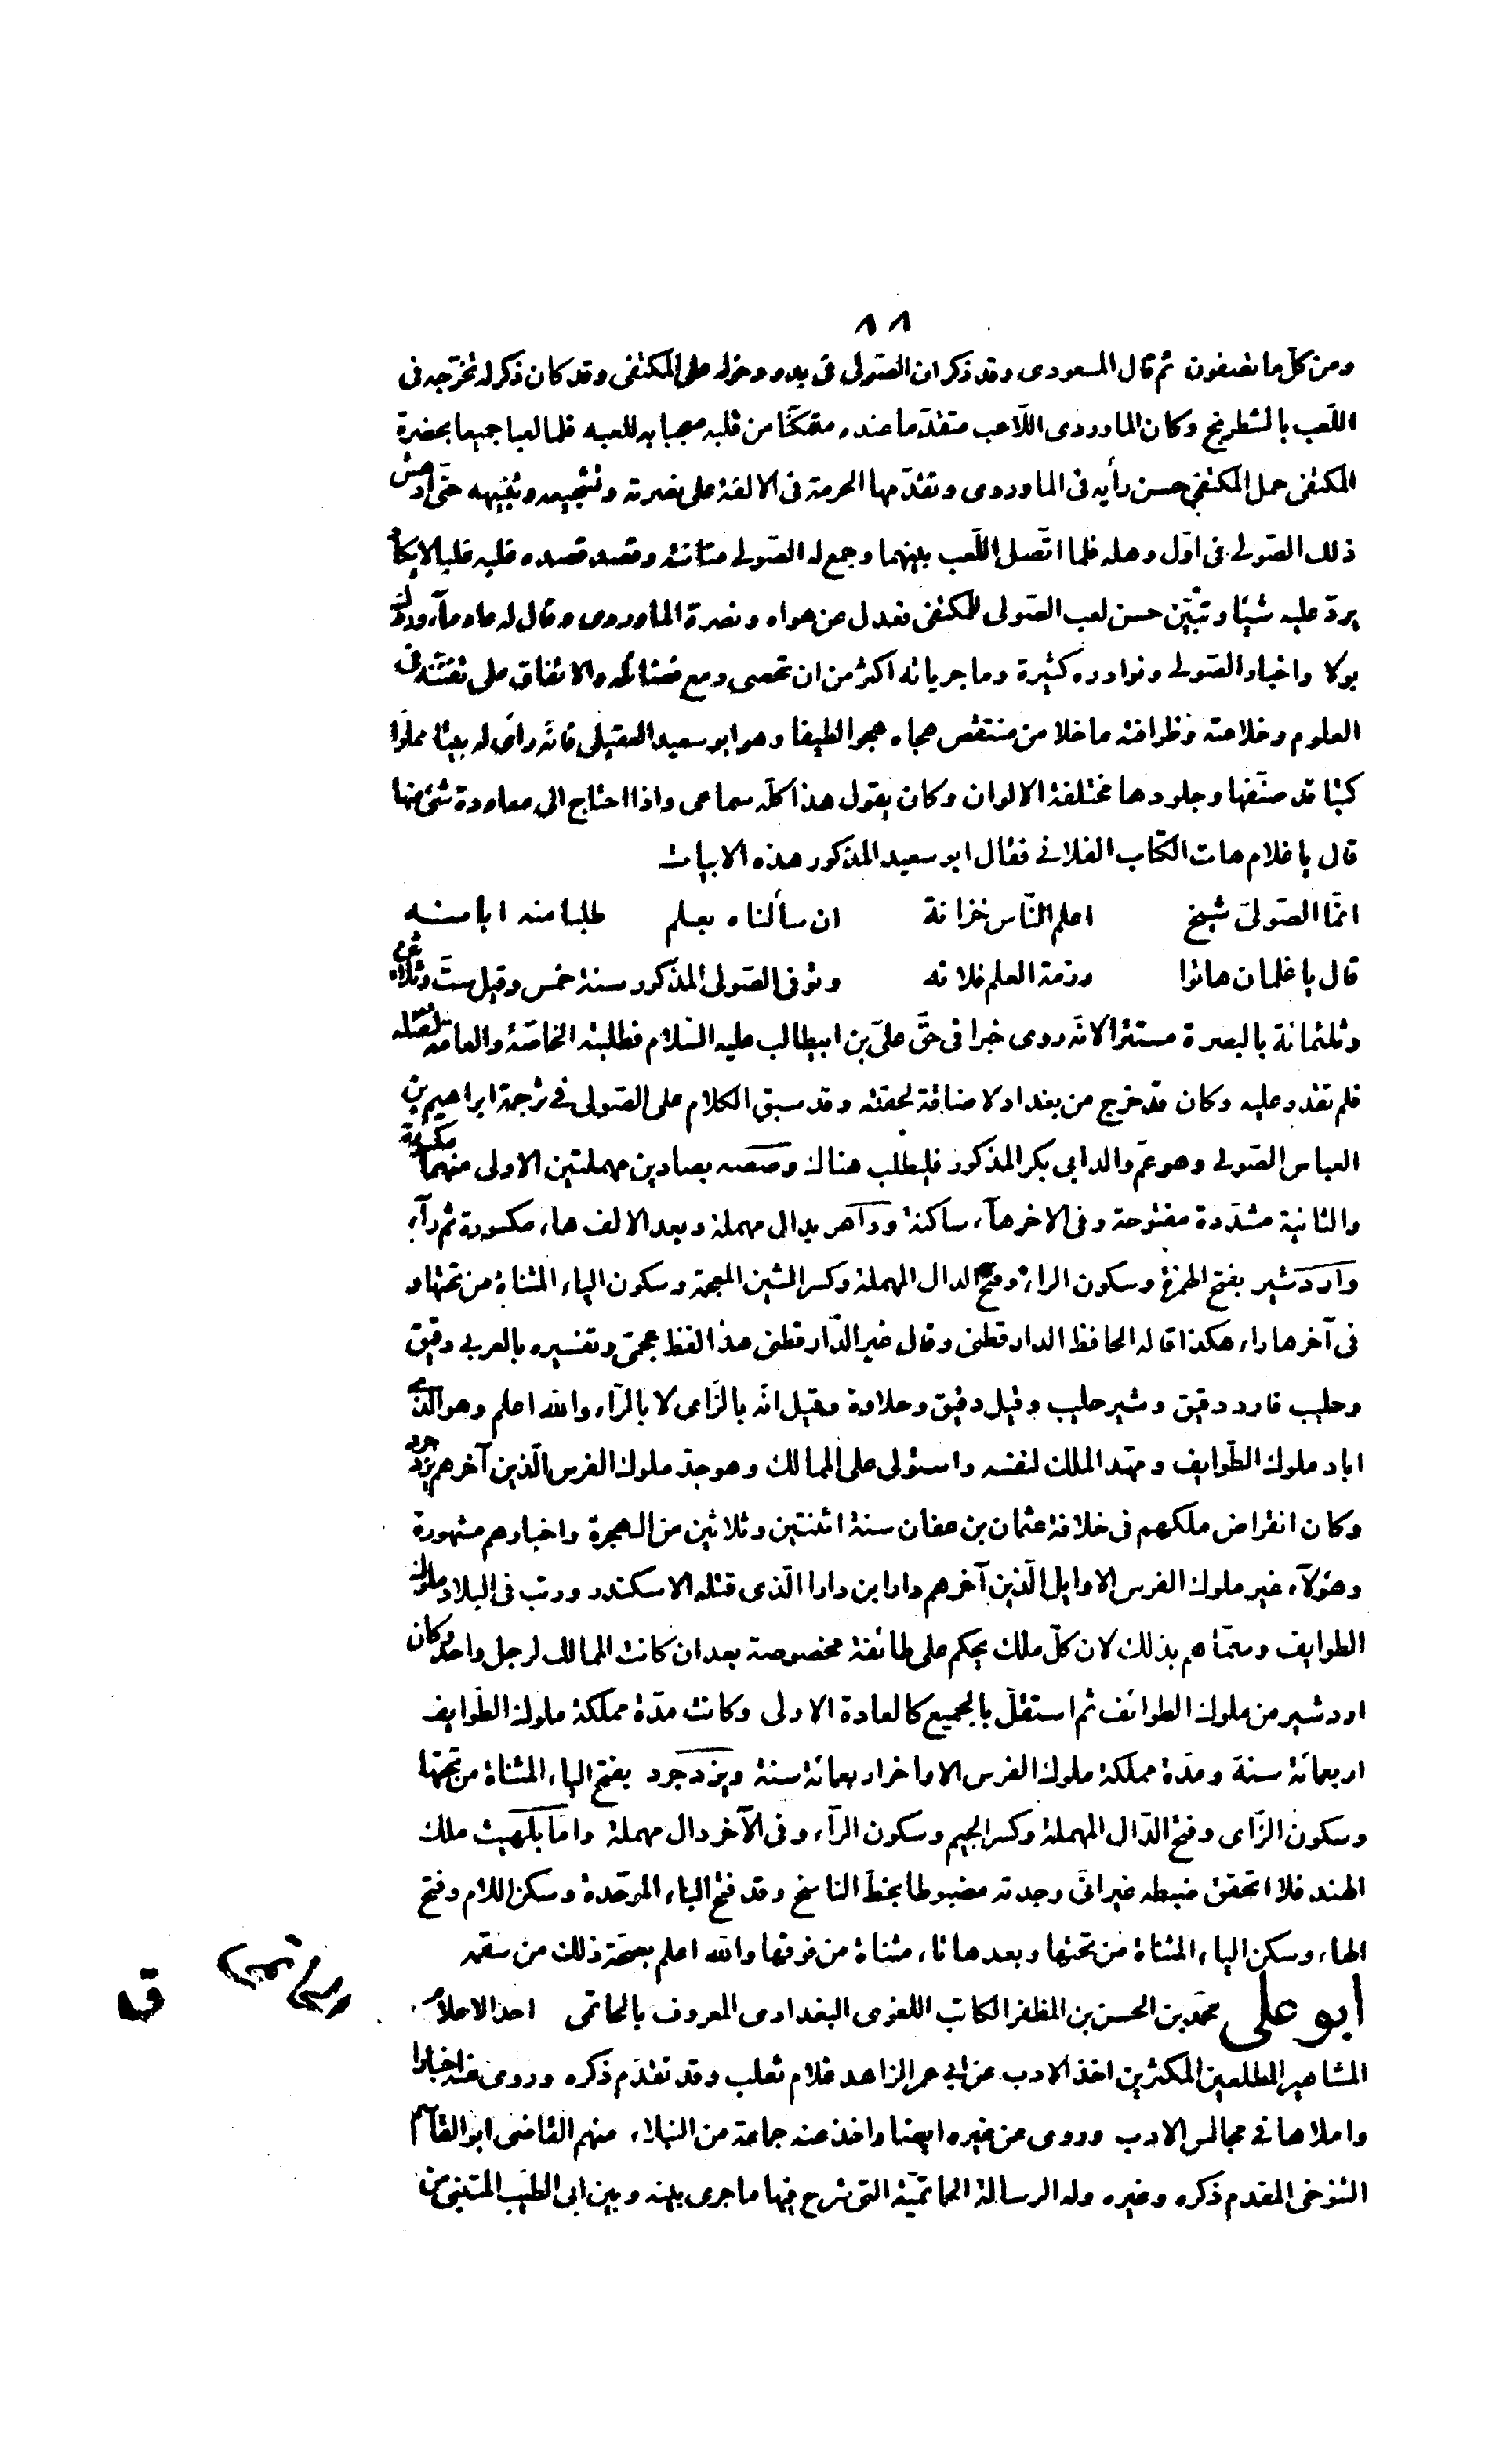 ٨٨
ومن كلّ ما تصفون ثم قال المسعودى وقد ذكر ان الصّولى فى بدو دخوله على المكتفى وقد كان ذكر له تخرّجه فى
اللّعب بالشطرنج وكان الماوردى اللّاعب متقدّما عنده متمكّنا من قلبه معجبا به للعبه فلما لعبا جميعا بحضرة
المكتفى حمل المكتفى حسن رأيه فى الماوردى وتقدّمها الحرمة فى الالفة على نصرته وتشجيعه وتنبيهه حتّى ادهش
ذلك الصّولى فى اوّل وهله فلما اتّصل اللّعب بينهما وجمع له الصّولى متانته وقصد قصده غلبه غلبا لا يكاد
يردّ عليه شيئا وتبيّن حسن لعب الصّولى للمكتفى فعدل عن هواه ونصرة الماوردى وقال له عاد مآء وردك
بولا واخبار الصّولى ونوادره كثيرة وماجرياته اكثر من ان تحصى ومع فضائله والاتفاق على تفنّنه فى
العلوم وخلاعته وظرافته ما خلا من منتقص هجاه هجوا لطيفا وهو ابو سعيد العقيلى فانّه رأى له بيتا مملوّا
كتبا قد صنّفها وجلودها مختلفة الالوان وكان يقول هذا كلّه سماعى واذا احتاج الى معاودة شىء منها
قال يا غلام هات الكتاب الفلانى فقال ابو سعيد المذكور هذه الابيات
انّما الصّولىّ شيخ اعلم النّاس خزانة ان سألناه بعلم طلبا منه ابانه
قال يا غلمان هاتوا رزمة العلم فلانه وتوفى الصّولى المذكور سنة خمس وقيل ستّ وثلاثين
وثلثمائة بالبصرة مستترا لانّه روى خبرا فى حقّ علىّ بن ابيطالب عليه السّلام فطلبته الخاصّة والعامّة لقتله
فلم تقدر عليه وكان قد خرج من بغداد لاضاقة لحقته وقد سبق الكلام على الصّولى فى ترجمة ابراهيم بن
العباس الصّولى وهو عمّ والد ابى بكر المذكور فليطلب هناك وصصه بصادين مهملتين الاولى منهما مكسورة
والثانية مشدّدة مفتوحة وفى الاخر هآء ساكنة وداهر بدال مهملة وبعد الالف هاء مكسورة ثم رآء
واردشير بفتح الهمزة وسكون الراء وفتح الدال المهملة وكسر الشين المعجمة وسكون الياء المثناة من تحتها و
فى آخرها راء هكذا قاله الحافظ الدارقطنى وقال غير الدّارقطنى هذا لفظ عجمىّ وتفسيره بالعربى دقيق
وحليب فارد دقيق وشير حليب وقيل دقيق وحلاوة وقيل انّه بالزّاى لا بالرّاء والله اعلم وهو الذى
اباد ملوك الطّوايف ومهّد الملك لنفسه واستولى على الممالك وهو جدّ ملوك الفرس الّذين آخرهم يزدجرد
وكان انقراض ملكهم فى خلافة عثمان بن عفان سنة اثنتين وثلاثين من الهجرة واخبارهم مشهورة
وهؤلآء غير ملوك الفرس الاوايل الّذين آخرهم دارا ابن دارا الّذى قتله الاسكندر ورتب فى البلاد ملوك
الطوايف وسمّاهم بذلك لان كلّ ملك يحكم على طائفة مخصوصة بعد ان كانت الممالك لرجل واحد وكان
اردشير من ملوك الطوائف ثم استقلّ بالجميع كالعادة الاولى وكانت مدّة مملكة ملوك الطّوايف
اربعمائة سنة ومدّة مملكة ملوك الفرس الاواخر اربعمائة سنة ويزدجرد بفتح الياء المثناة من تحتها
وسكون الزّاى وفتح الدّال المهملة وكسر الجيم وسكون الرآء وفى الآخر دال مهملة وامّا بلهيت ملك
الهند فلا اتحقق ضبطه غير انّى وجدته مضبوطا بخطّ الناسخ وقد فتح الباء الموحّدة وسكن اللام وفتح
الهاء وسكن الياء المثناة من تحتها وبعدها تاء مثناة من فوقها والله اعلم بصحّة ذلك من سقمه
أبو على محمّد بن الحسن بن المظفر الكاتب اللغوى البغدادى المعروف بالحاتمى احد الاعلام
المشاهير المطلعين المكثرين اخذ الادب عن ابى عمر الزاهد غلام ثعلب وقد تقدّم ذكره وروى عنه اخبارا
واملاها فى مجالس الادب وروى عن غيره ايضا واخذ عنه جماعة من النبلاء منهم القاضى ابو القاسم
التنوخى المقدم ذكره وغيره وله الرسالة الحاتميّة التى شرح فيها ما جرى بينه وبين ابى الطيّب المتنبى من
ق